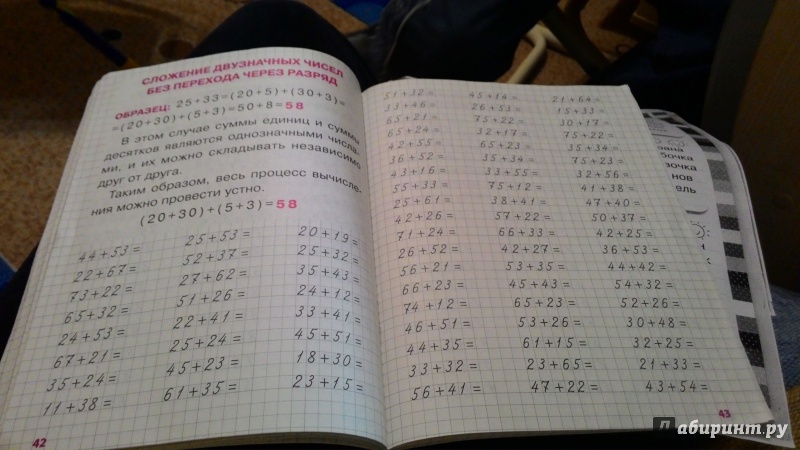 СЛОЖЕНИЕ ДВУЗНАЧНЫХ ЧИСЕЛ
БЕЗ ПЕРЕХОДА ЧЕРЕЗ РАЗРЯД
ОБРАЗЕЦ: 25+33=(20+5)+(30+3)=
=(20+30)+(5+3)=50+8=58
В этом случае суммы единиц и суммы
десятков являются однозначными числа-
ми, и их можно складывать независимо
друг от друга.
Таким образом, весь процесс вычисле-
ния можно провести устно.
(20+30)+(5+3)=58
44+53= 25+53= 20+19=
22+67= 52+37= 25+32=
73+22= 27+62= 35+43=
65+32= 51+26= 24+12=
24+53= 22+41= 33+41=
67+21= 25+24= 45+51=
35+24= 45+23= 18+30=
11+38= 61+35= 23+15=
42
51+32= 45+14= 21+64=
33+46= 26+53= 15+33=
65+21= 75+22= 30+17=
65+24= 32+17= 75+22=
42+55= 65+23= 35+34=
36+52= 35+34= 75+23=
43+16= 33+55= 32+56=
55+33= 75+12= 41+38=
25+61= 38+41= 47+40=
42+26= 57+22= 50+37=
71+24= 66+33= 42+25=
26+52= 42+27= 36+53=
56+21= 53+35= 44+42=
66+23= 45+43= 54+32=
74+12= 65+23= 52+26=
46+51= 53+26= 30+48=
44+35= 61+15= 32+25=
33+32= 23+65= 21+33=
56+41= 47+22= 43+54=
43
бочка
нов
тель
лабиринт.ру